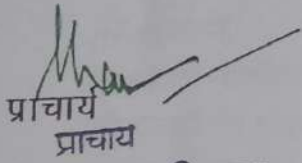 प्राचार्य
प्राचाय